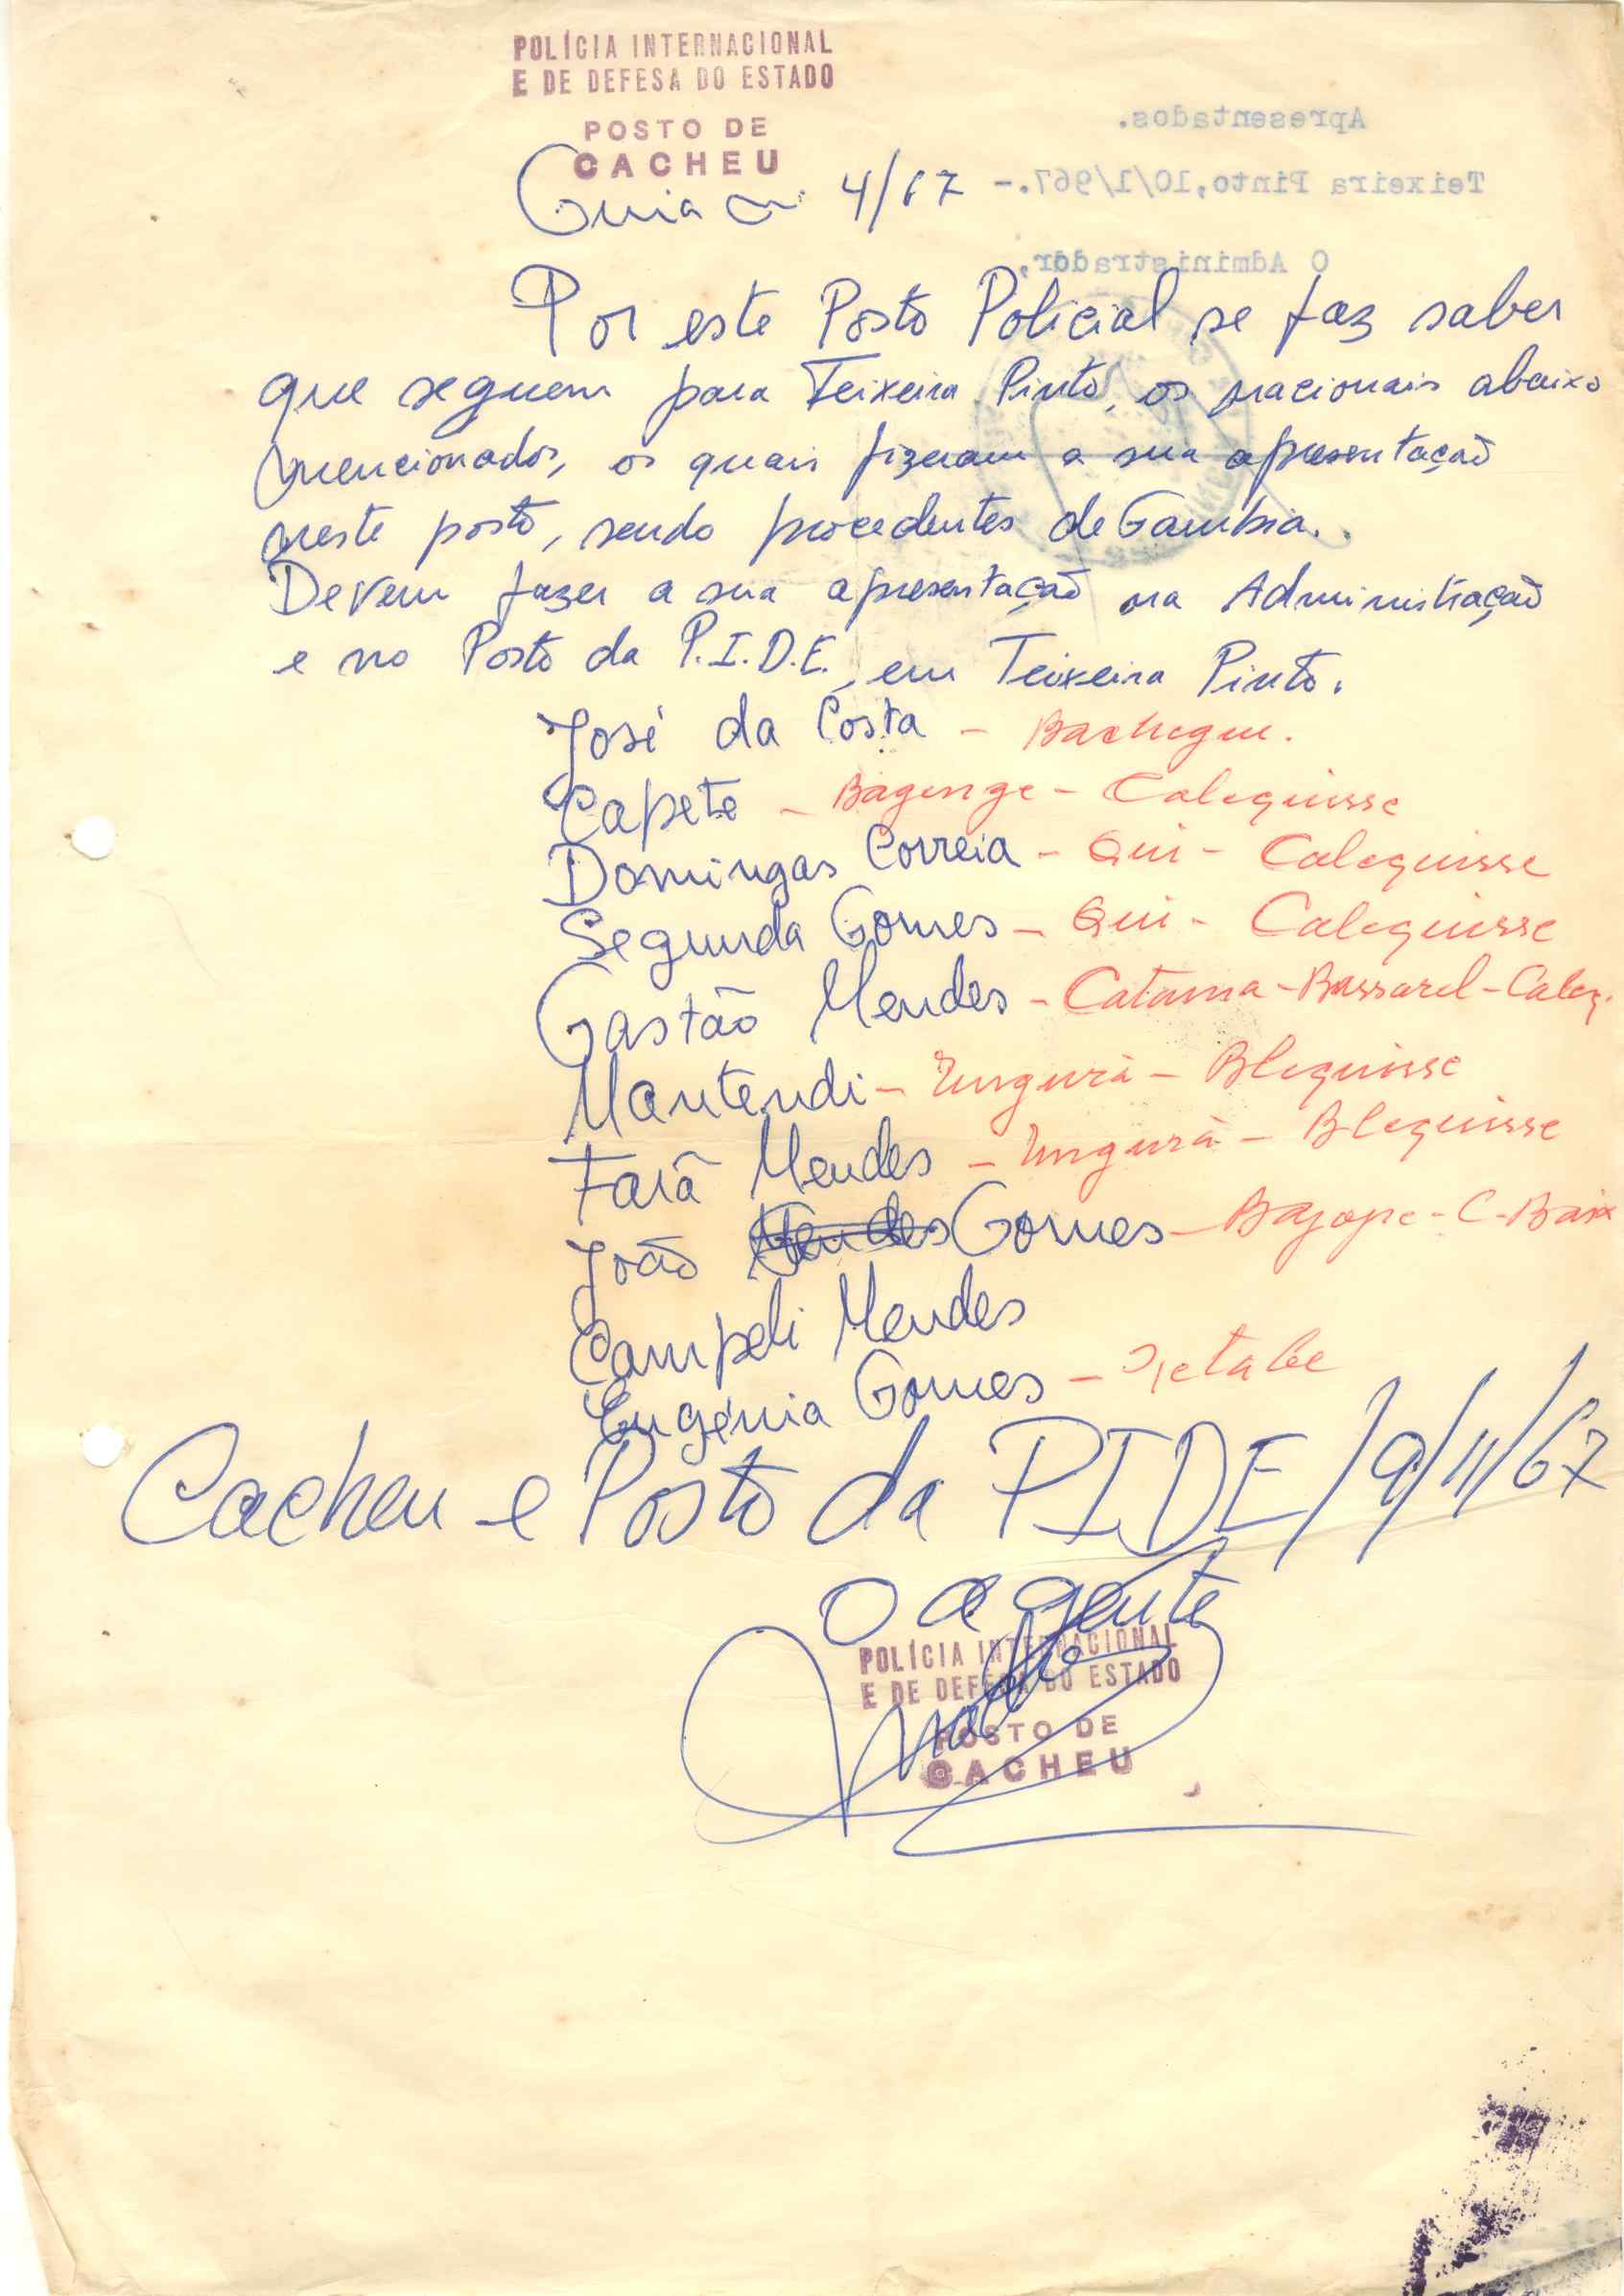 POLÍCIA INTERNACIONAL
E DE DEFESA DO ESTADO
POSTO DE
CACHEU
Apresentados.
Teixeira Pinto,10/1/967.-
O Administrador,
Guia nº 4/67
Por este Posto Policial se faz saber
que seguem para Teixeira Pinto, os nacionais abaixo
mencionados, os quais fizeram a sua apresentação
neste posto, sendo procedentes de Gambia.
Devem fazer a sua apresentação na Administração
e no Posto da P.I.D.E. em Teixeira Pinto.
José da Costa - Bachegue.
Capete - Bagenge - Calequisse
Domingas Correia - Qui - Calequisse
Segunda Gomes - Qui - Calequisse
Gastão Mendes - Catama - Bassarel - Caleq.
Mantendi - Ungurá - Blequisse
Farã Mendes - Ungurá - Blequisse
João Mendes Gomes - Bajope - C-Baix
Campeli Mendes
Eugénia Gomes -
Cacheu e Posto da PIDE/9/11/67
O agente
POLÍCIA INTERNACIONAL
E DE DEFESA DO ESTADO
POSTO DE
CACHEU